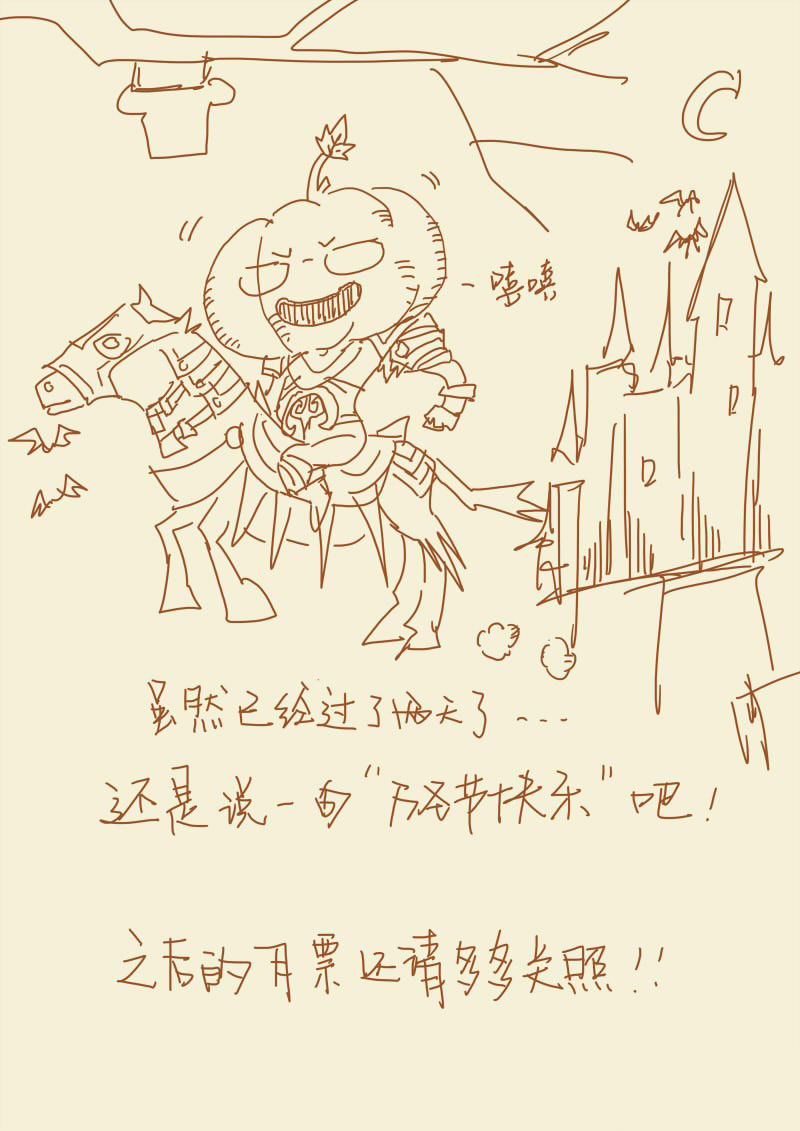 嘻嘻
虽然已经过了两天了...
还是说一句“万圣节快乐”吧！
之后的月票还请多多关照！！